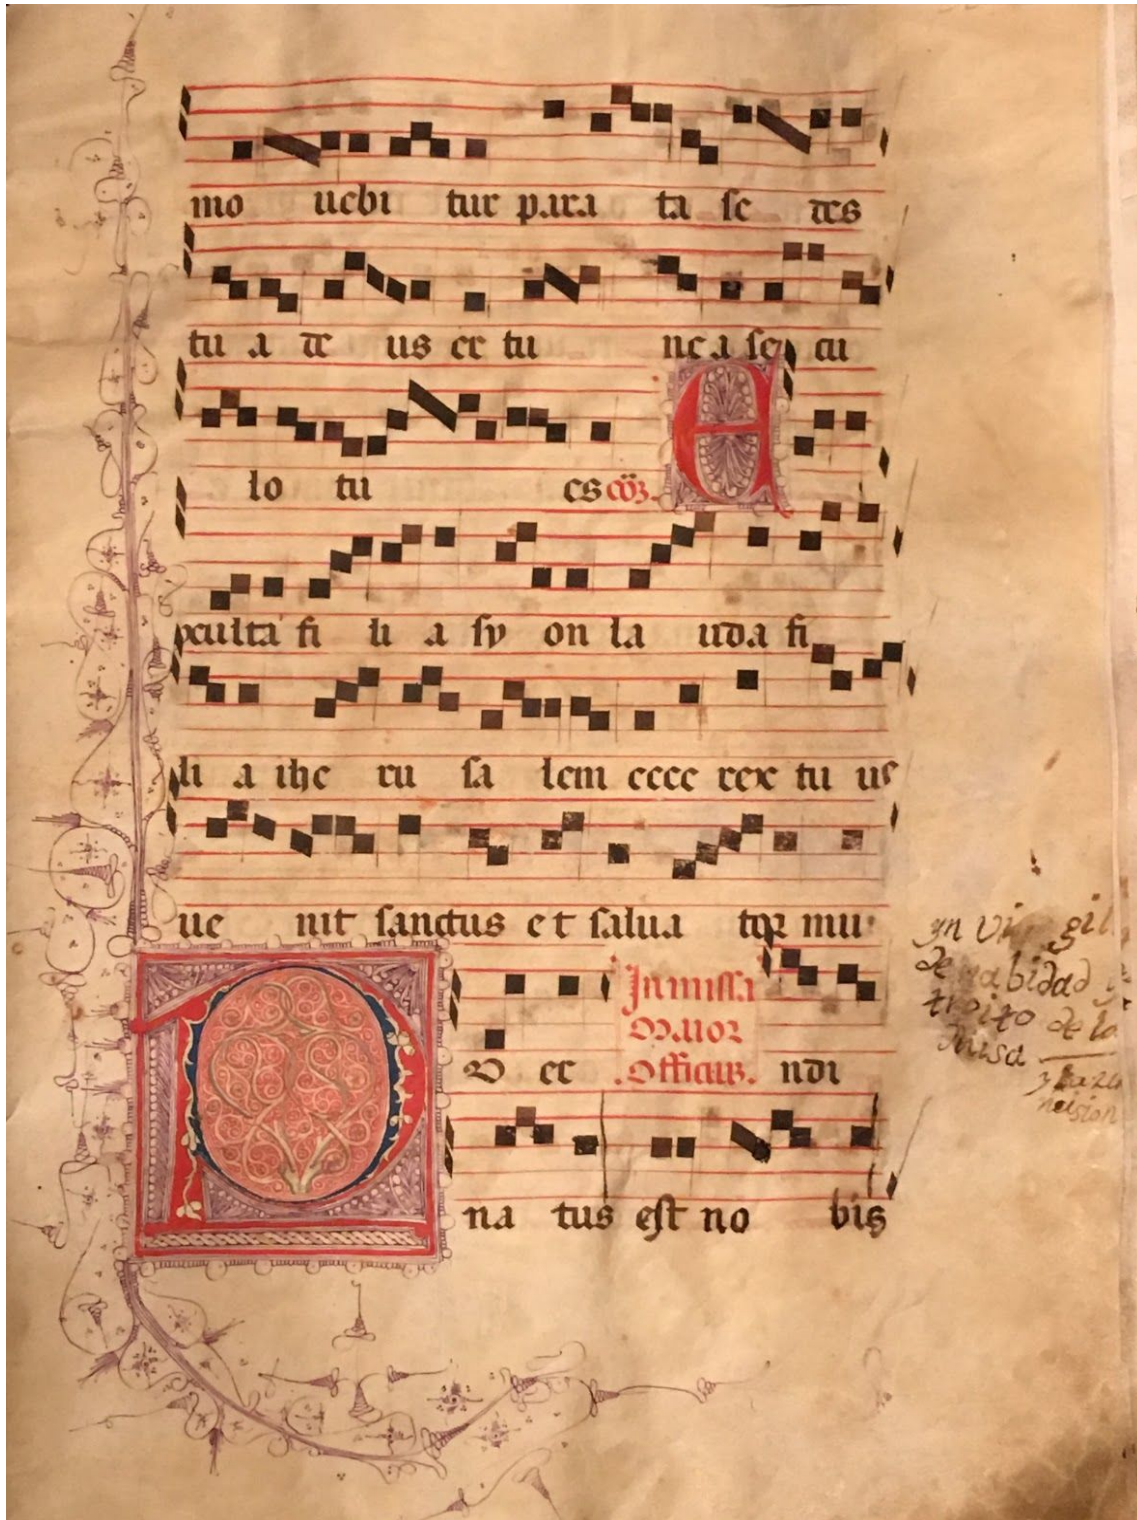 mo uebi tur para ta se des
tu a de us ex tu nc a secu
lo tu es cōꝫ. E
xculta fi li a sy on la uda fi
li a ihe ru sa lem ecce rex tu us
ue nit sanctus et salua tor mu
P In missa
maior
U er officiuꝫ. ndi
na tus est no bis
yn gil
de nabidad
troito de la
misa